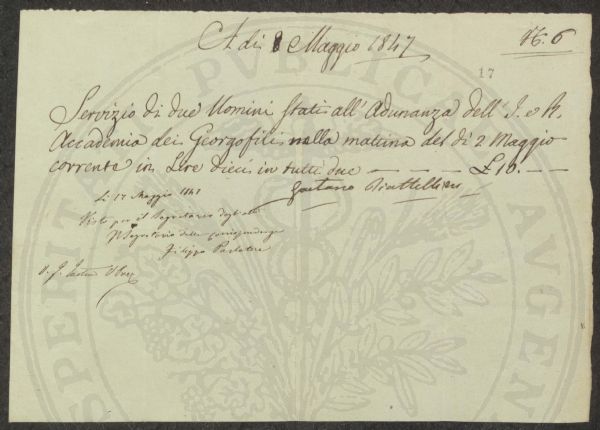 A di 8 Maggio 1847
N. 6
17
Servizio di due Uomini stati all'Adunanza dell' I. e R.
Accademia dei Georgofili nella mattina del dì 2 Maggio
corrente in Lire dieci in tutti due — — — £ 10. — —
Gaetano
Li 17 Maggio
Visto per il Segretario degli Atti
Il Segretario delle corrispondenze
Filippo Parlatore
PUBLICA
PROSPERITA
AUGEN